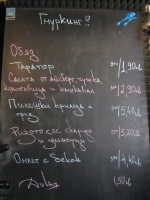 Обяд
Таратор 1,90лв
Салата от айсберг, чушка,
краставица и 2,90лв
Пилешки крилца с 5,40лв
ориз
Ризото със скариди 5,20лв
и
Омлет с бекон 4,40лв
1,50лв